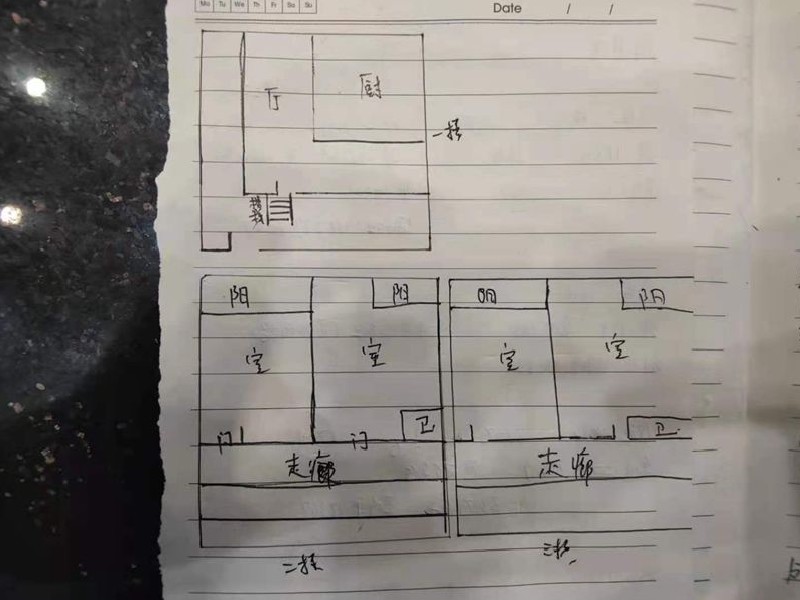 Mo Tu We Th Fr Sa Su
Date / /
厅 厨
一楼
楼梯
阳 阳 阳 阳
室 室 室 室
门 门 卫 卫
走廊 走廊
二楼 三楼